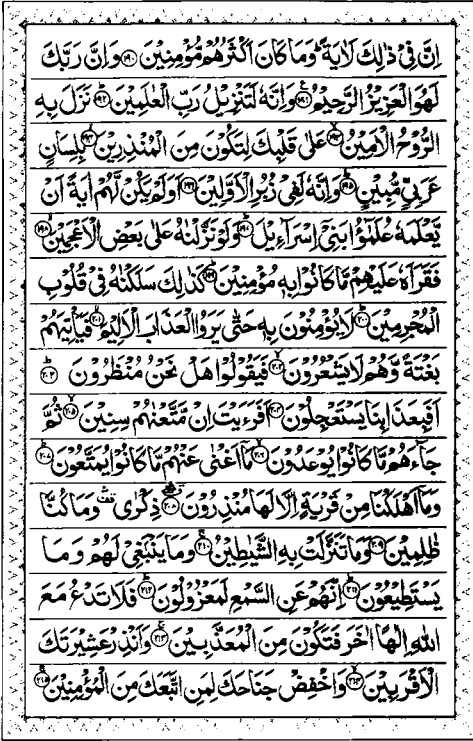 اِنَّ فِیْ ذٰلِكَ لَاٰیَةً ؕ وَمَا كَانَ اَكْثَرُهُمْ مُّؤْمِنِیْنَ ۝۱۹۰ وَاِنَّ رَبَّكَ
لَهُوَ الْعَزِیْزُ الرَّحِیْمُ ۝۱۹۱ وَاِنَّهٗ لَتَنْزِیْلُ رَبِّ الْعٰلَمِیْنَ ۝۱۹۲ نَزَلَ بِهِ
الرُّوْحُ الْاَمِیْنُ ۝۱۹۳ عَلٰی قَلْبِكَ لِتَكُوْنَ مِنَ الْمُنْذِرِیْنَ ۝۱۹۴ بِلِسَانٍ
عَرَبِیٍّ مُّبِیْنٍ ۝۱۹۵ وَاِنَّهٗ لَفِیْ زُبُرِ الْاَوَّلِیْنَ ۝۱۹۶ اَوَلَمْ یَكُنْ لَّهُمْ اٰیَةً اَنْ
یَّعْلَمَهٗ عُلَمٰٓؤُا بَنِیْۤ اِسْرَآءِیْلَ ۝۱۹۷ وَلَوْ نَزَّلْنٰهُ عَلٰی بَعْضِ الْاَعْجَمِیْنَ ۝۱۹۸
فَقَرَاَهٗ عَلَیْهِمْ مَّا كَانُوْا بِهٖ مُؤْمِنِیْنَ ۝۱۹۹ كَذٰلِكَ سَلَكْنٰهُ فِیْ قُلُوْبِ
الْمُجْرِمِیْنَ ۝۲۰۰ لَا یُؤْمِنُوْنَ بِهٖ حَتّٰی یَرَوُا الْعَذَابَ الْاَلِیْمَ ۝۲۰۱ فَیَاْتِیَهُمْ
بَغْتَةً وَّهُمْ لَا یَشْعُرُوْنَ ۝۲۰۲ فَیَقُوْلُوْا هَلْ نَحْنُ مُنْظَرُوْنَ ۝۲۰۳
اَفَبِعَذَابِنَا یَسْتَعْجِلُوْنَ ۝۲۰۴ اَفَرَءَیْتَ اِنْ مَّتَّعْنٰهُمْ سِنِیْنَ ۝۲۰۵ ثُمَّ
جَآءَهُمْ مَّا كَانُوْا یُوْعَدُوْنَ ۝۲۰۶ مَاۤ اَغْنٰی عَنْهُمْ مَّا كَانُوْا یُمَتَّعُوْنَ ۝۲۰۷
وَمَاۤ اَهْلَكْنَا مِنْ قَرْیَةٍ اِلَّا لَهَا مُنْذِرُوْنَ ۝۲۰۸ ذِكْرٰی وَمَا كُنَّا
ظٰلِمِیْنَ ۝۲۰۹ وَمَا تَنَزَّلَتْ بِهِ الشَّیٰطِیْنُ ۝۲۱۰ وَمَا یَنْۢبَغِیْ لَهُمْ وَمَا
یَسْتَطِیْعُوْنَ ۝۲۱۱ اِنَّهُمْ عَنِ السَّمْعِ لَمَعْزُوْلُوْنَ ۝۲۱۲ فَلَا تَدْعُ مَعَ
اللّٰهِ اِلٰهًا اٰخَرَ فَتَكُوْنَ مِنَ الْمُعَذَّبِیْنَ ۝۲۱۳ وَاَنْذِرْ عَشِیْرَتَكَ
الْاَقْرَبِیْنَ ۝۲۱۴ وَاخْفِضْ جَنَاحَكَ لِمَنِ اتَّبَعَكَ مِنَ الْمُؤْمِنِیْنَ ۝۲۱۵